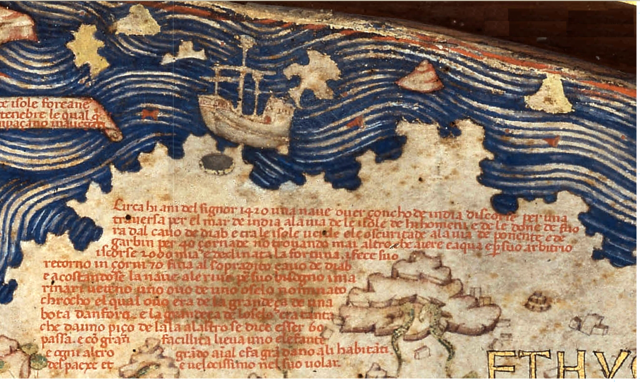 te isole foreane
tenebre le qual
Circa hi ani del signor 1420 una naue ouer concho de india discorse per una
trauersa per el mar de india a la uia de le isole de hi homeni e de le done de fuo
ra dal cauo de diab e tra le isole uerde e le oscuritade a la uia de ponente e de
garbin per 40 cornade no trouando mai altro che aiere e aqua e p suo arbitrio
iscorse 2000 mia e declinata la fortuna i fece suo
retorno in corni 70 fina al sopradito cauo de diab
E acostandose la naue a le riue p suo bisogno i ma
rinari uedeno uno ouo de uno oselo nominato
chrocho el qual ouo era de la grandeça de una
bota d anfora e la grandeça de l oselo era tanta
che da uno piço de l ala a l altro se dice esser 60
passa e cō gran facillita lieua uno elefante
e ogni altro grādo aial e fa grā dano a li habitāti
del paexe et e uelocissimo nel suo uolar.
ETHYO